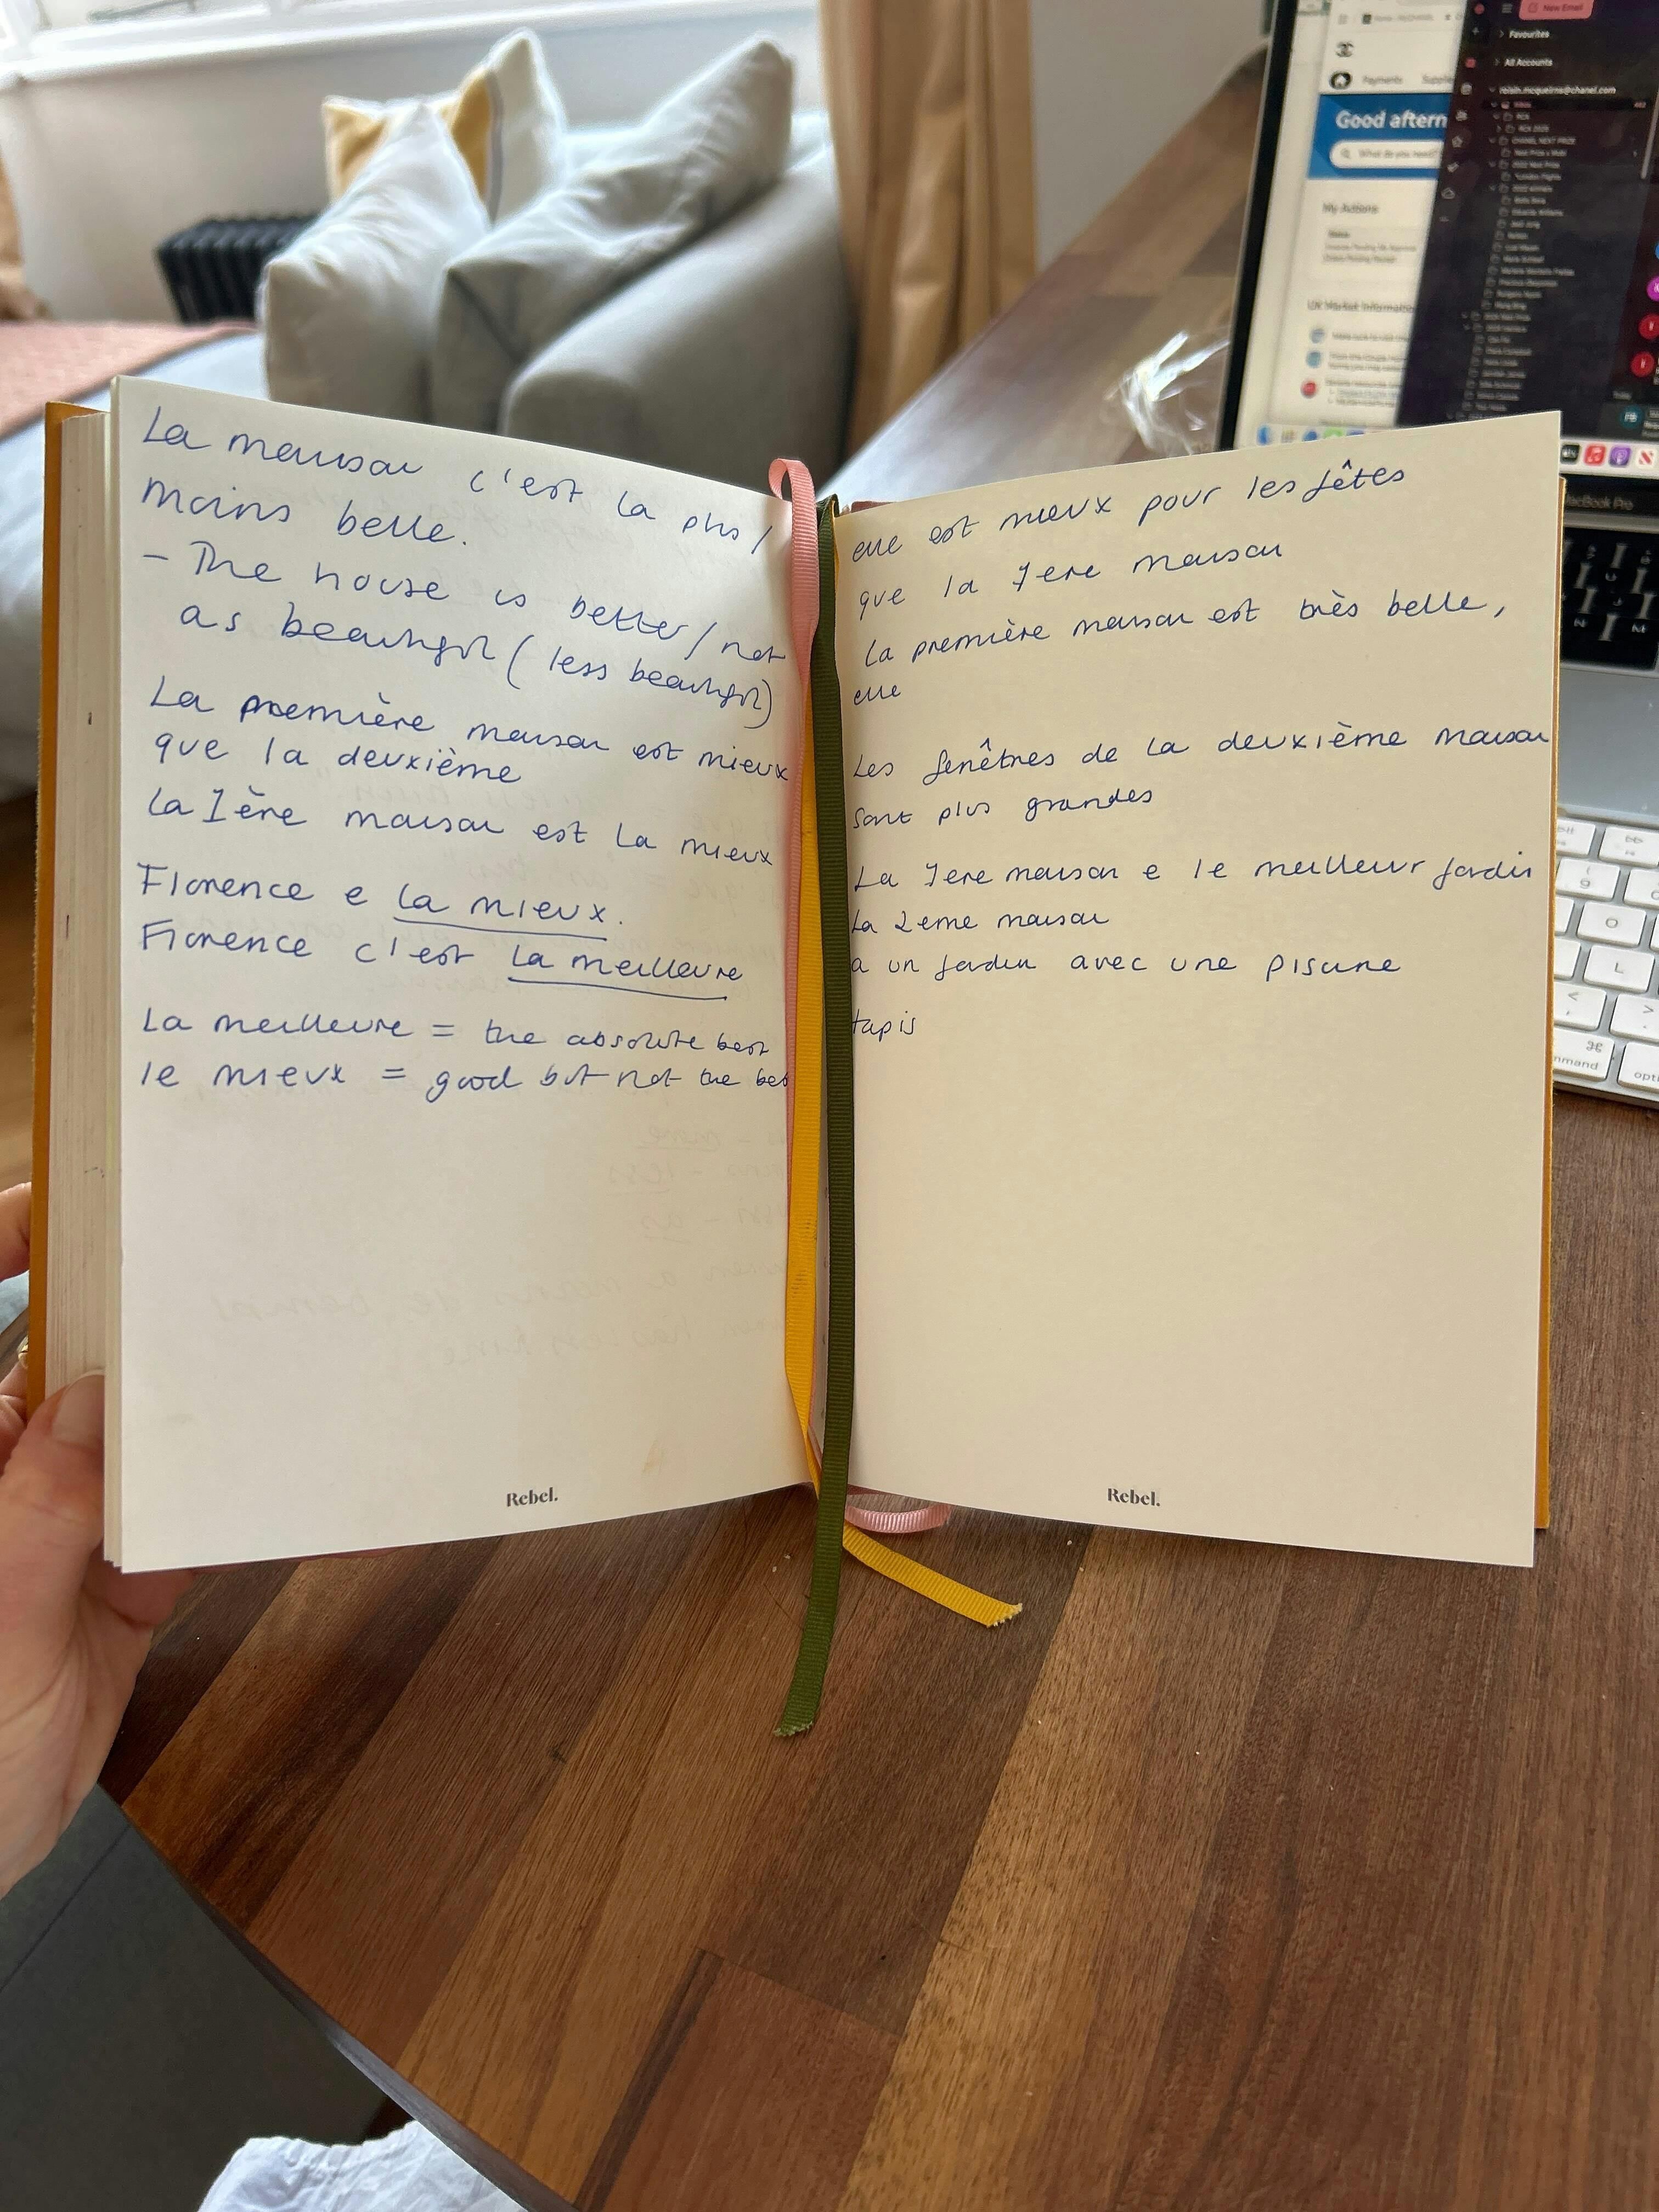 La maison c'est la plus /
moins belle.
- The house is better / not
as beautiful (less beautiful)
La première maison est mieux
que la deuxième
La 1ère maison est la mieux
Florence e la mieux.
Florence c'est la meilleure
La meilleure = the absolute best
le mieux = good but not the best
Rebel.
elle est mieux pour les fêtes
que la 1ere maison
La première maison est très belle,
elle
Les fenêtres de la deuxième maison
sont plus grandes
La 1ere maison e le meilleur jardin
La 2eme maison
a un jardin avec une piscine
tapis
Rebel.
New Email
Favourites
All Accounts
Payments
Good aftern
My Actions
UK Market Information
MacBook Pro